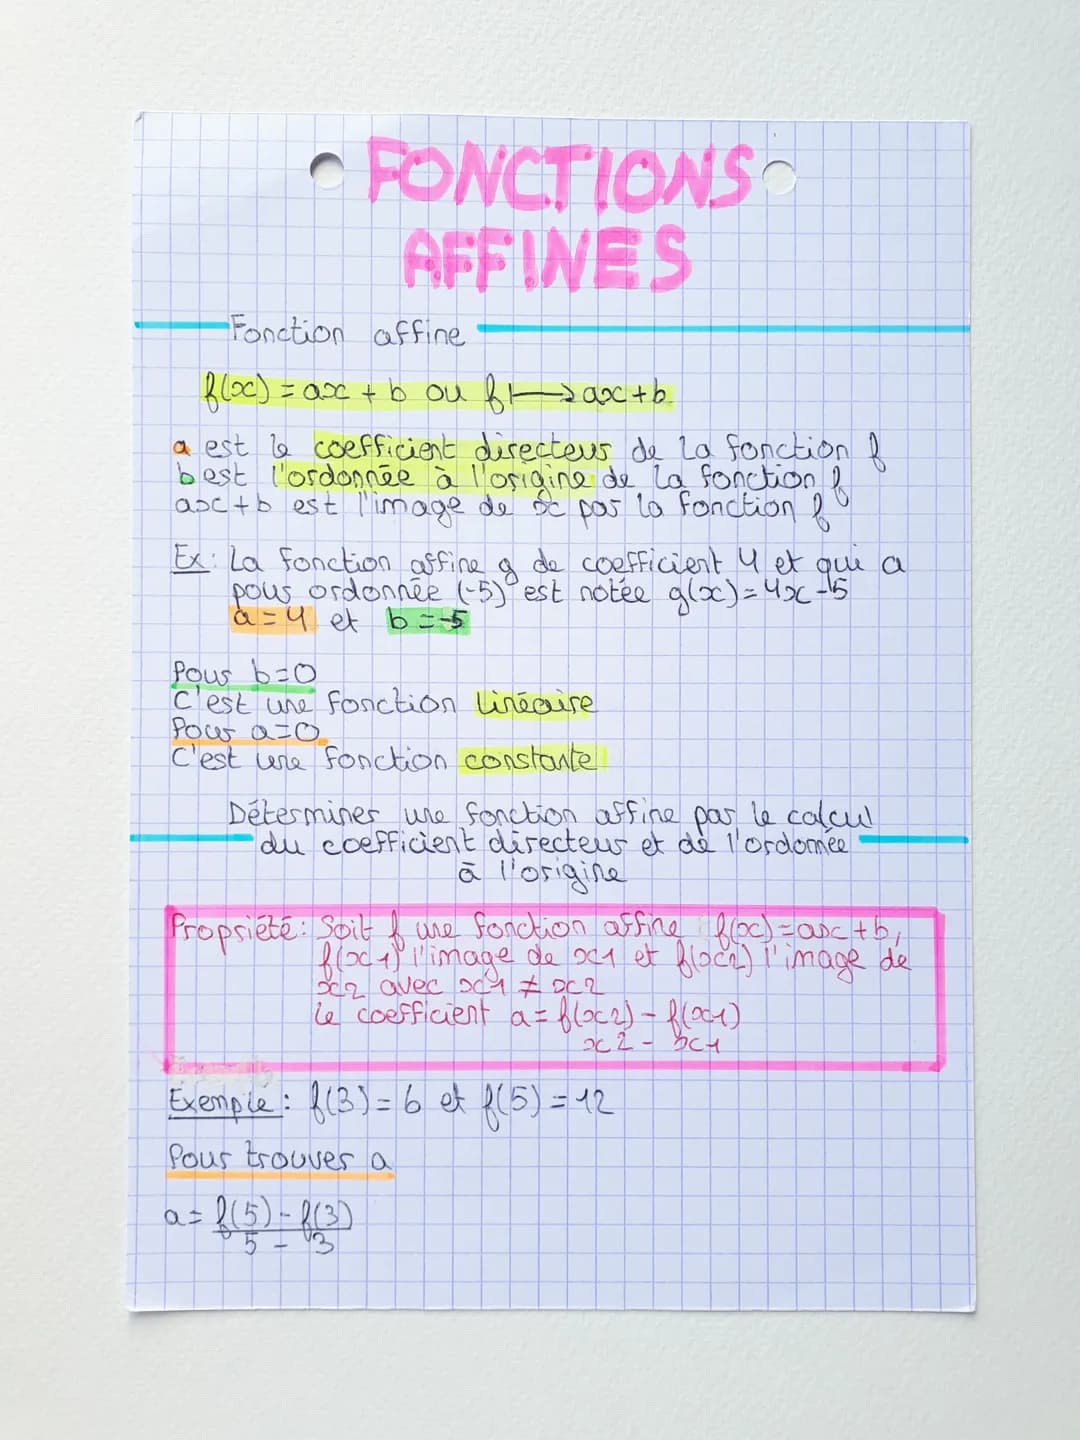 FONCTIONS
AFFINES
Fonction affine
f(x) = ax + b ou f ⟼ ax + b.
a est le coefficient directeur de la fonction f
b est l'ordonnée à l'origine de la fonction f
ax + b est l'image de x par la fonction f
Ex: La fonction affine g de coefficient 4 et qui a
pour ordonnée (-5) est notée g(x) = 4x - 5
a = 4 et b = -5
Pour b = 0
C'est une fonction linéaire
Pour a = 0
C'est une fonction constante
Déterminer une fonction affine par le calcul
du coefficient directeur et de l'ordonnée
à l'origine
Propriété: Soit f une fonction affine f(x) = ax + b,
f(x1) l'image de x1 et f(x2) l'image de
x2 avec x1 ≠ x2
le coefficient a = f(x2) - f(x1)
x2 - x1
Exemple: f(3) = 6 et f(5) = 12
Pour trouver a
a = f(5) - f(3)
5 - 3